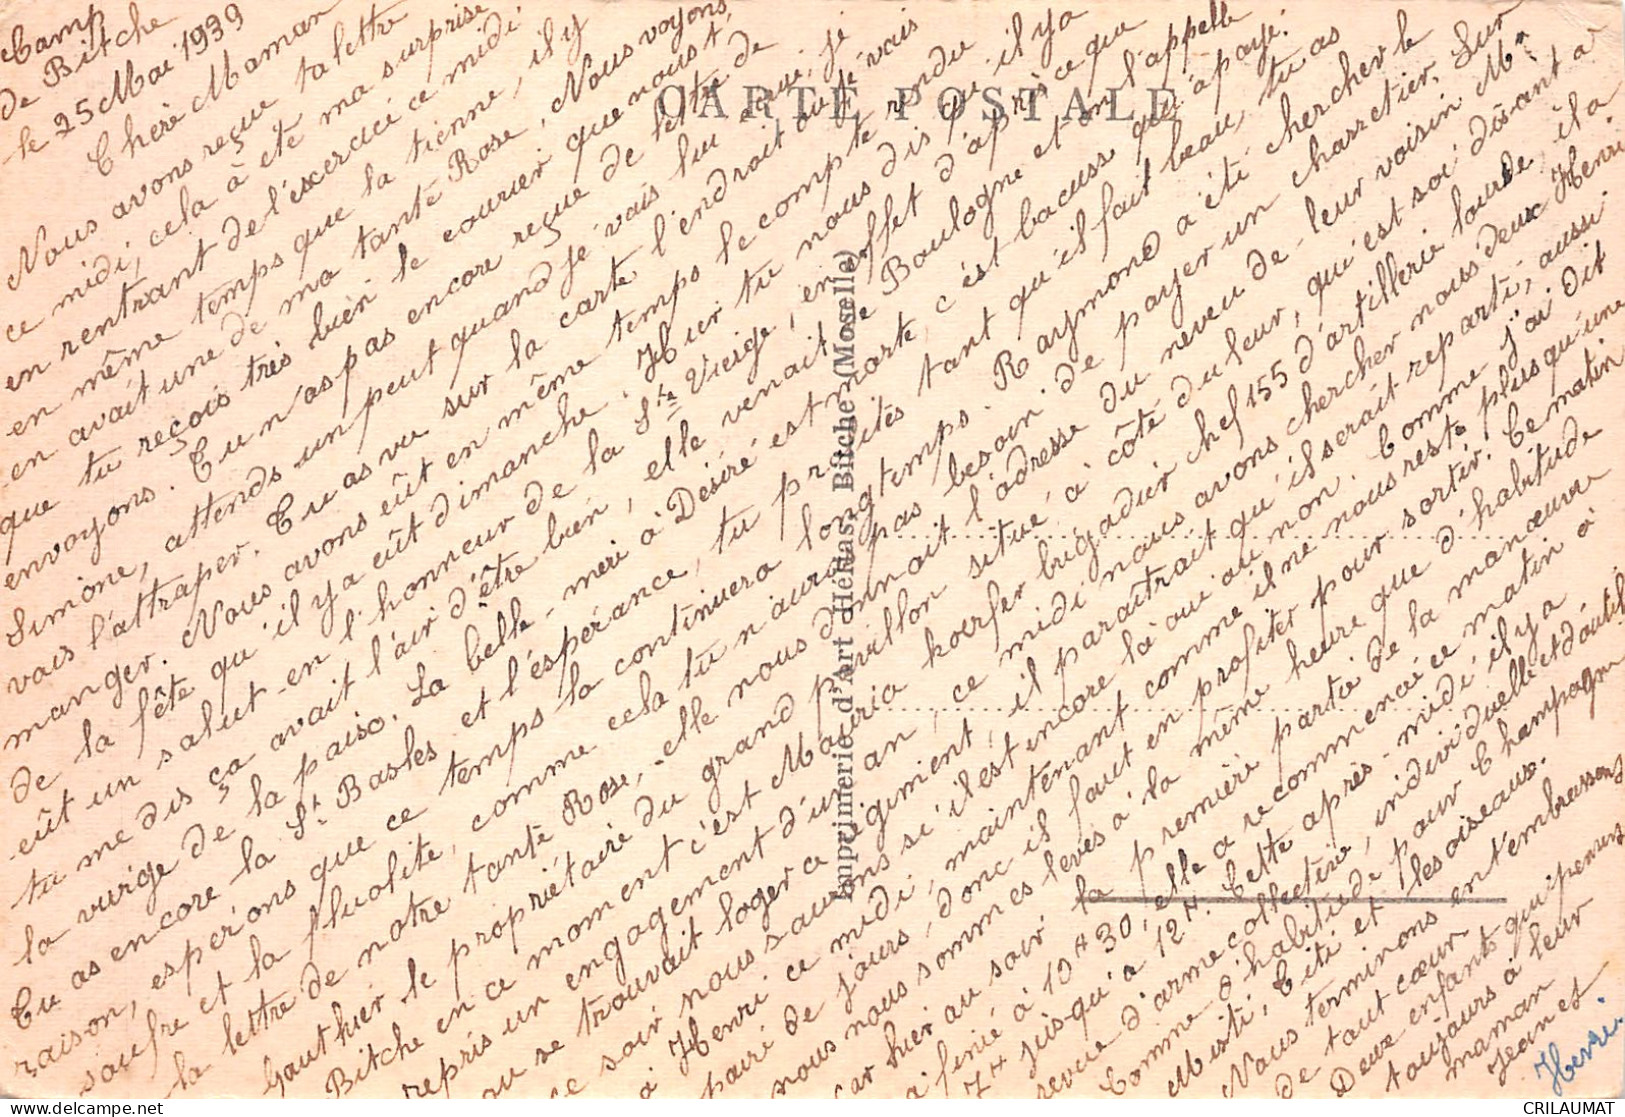 Camp
de Bitche
le 25 Mai 1939
Chère Maman
Nous avons reçue ta lettre
ce midi, cela à été ma surprise
en rentrant de l'éxercice ce midi
en même temps que la tienne, il y
en avait une de ma tante Rose, Nous voyons
que tu reçois très bien le courier que nous t'
envoyons. Tu n'as pas encore reçue de lettre de
Simone, attends un peut quand je vais lui aui, je
vais l'attraper. Tu as vu sur la carte l'endroit ou je vais
manger. Nous avons eût en même temps le compte rendu
de la fête qu'il y a eût dimanche. Hier tu nous dis qu'il y a
eût un salut en l'honneur de la Ste Vierge, en effet d'après ce que
tu me dis ça avait l'air d'être bien, elle venait de Boulogne et on l'appelle
la vierge de la paix. La belle-mère à Désiré est morte, c'est bacuss qui à payé.
Tu as encore la St Basles et l'éspérance, tu profites tant qu'il fait beau, tu as
raison, espérons que ce temps la continuera longtemps. Raymond a été chercher le
soufre et la fluolite, comme cela tu n'auras pas besoin de payer un charretier. Sur
la lettre de notre tante Rose, elle nous donnait l'adresse du neveu de leur voisin Mr
Gauthier le propriétaire du grand pavillon situé à côté du leur, qui est soi-disant a
Bitche en ce moment c'est Mauria hoerfer brigadier chef 155 d'artillerie lourde, il a
repris un engagement d'un an, ce midi nous avons chercher nous deux Henri
ou se trouvait loger ce régiment, il paraîtrait qu'il serait reparti, aussi
ce soir nous saurons si il est encore là oui ou non. Comme j'ai dit
à Henri ce midi, maintenant comme il ne nous reste plus qu'une
pairé de jours, donc il faut en profiter pour sortir. Ce matin
nous nous sommes levés à la même heure que d'habitude
car hier au soir la première partie de la manœuvre
a finié à 10 H 30, elle a recommencée ce matin à
7 H jusqu'à 12 H. Cette après-midi il y a
revue d'arme collective, individuelle et d'outil
Comme d'habitude pour Champagn
Misti, Titi et les oiseaux.
Nous terminons en t'embrassons
de tout cœur
Deux enfants qui pensens
toujours à leur
maman
Jean et
Henri.
CARTE POSTALE
Imprimerie d'Art Hellas, Bitche (Moselle)
CRILAUMAT